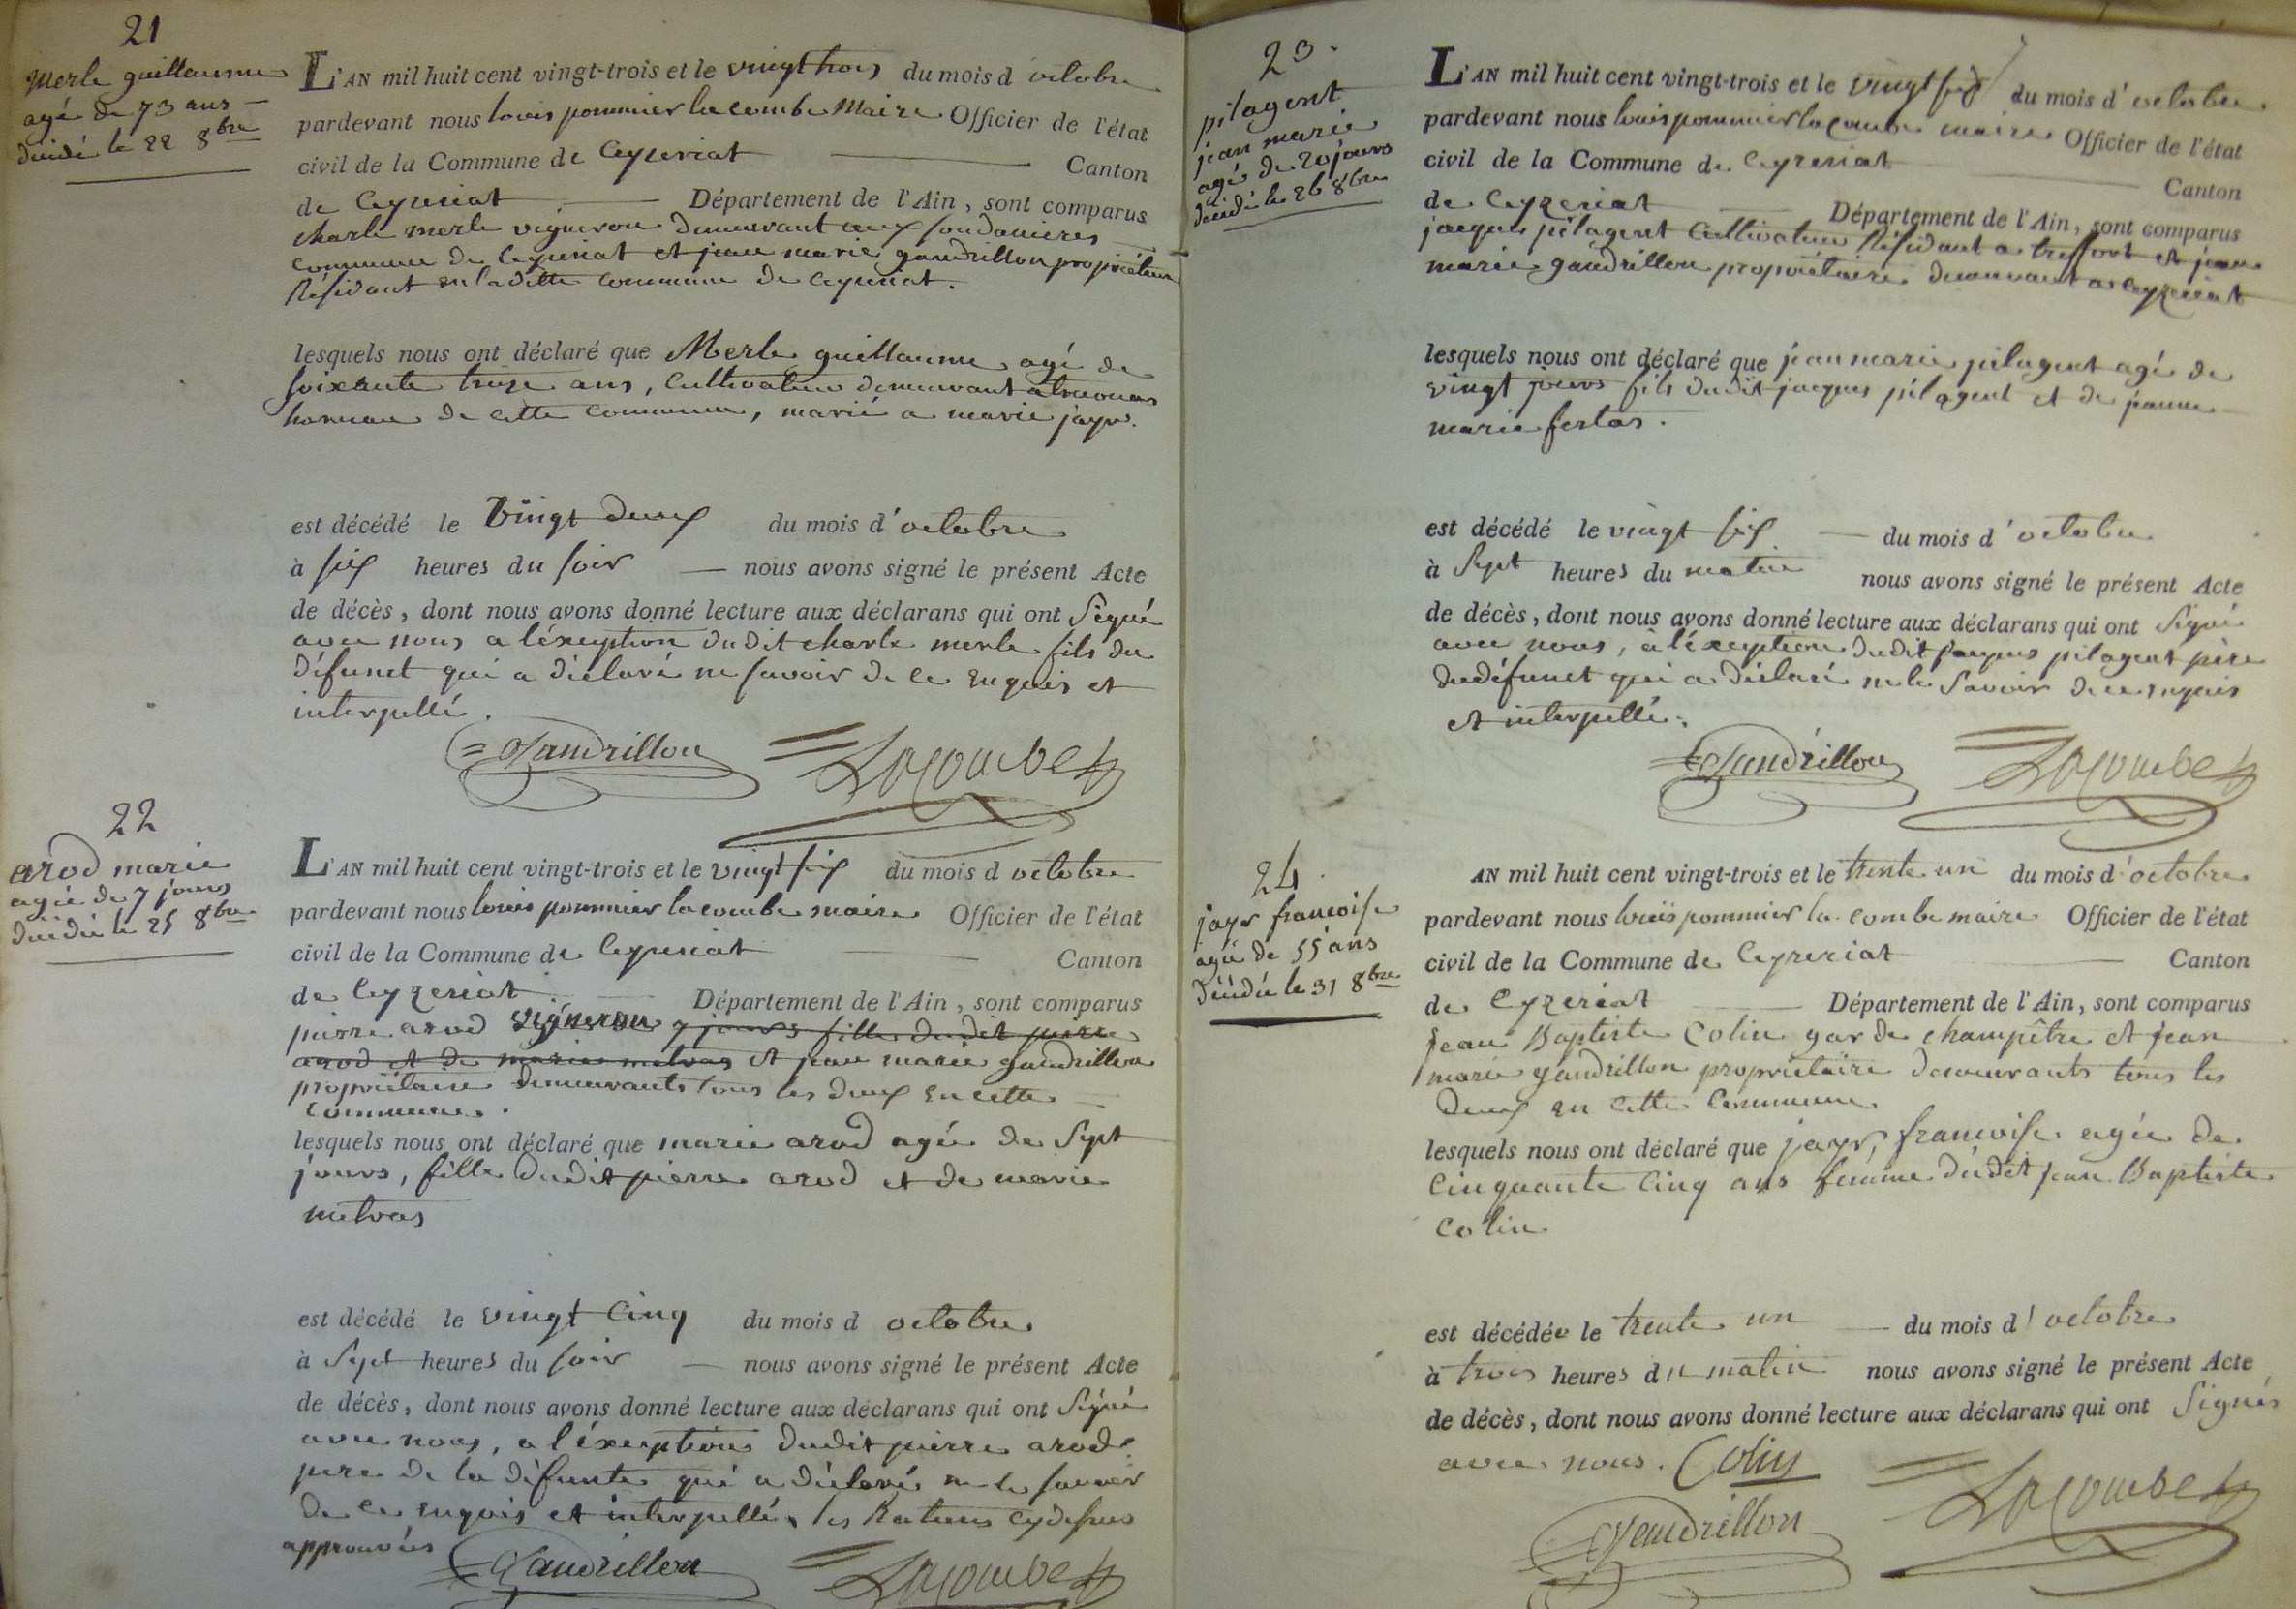 21
Merle guillaume
agé de 73 ans
décédé le 22 8bre
L'AN mil huit cent vingt-trois et le vingt trois du mois d octobre
pardevant nous louis pommier lacombe Maire Officier de l'état
civil de la Commune de Ceyzeriat Canton
de Ceyzeriat Département de l'Ain, sont comparus
charle merle vigneron demeurant aux soudanieres
commune de Ceyzeriat et jean marie gandrillon propriétaire
Résidant en la ditte commune de ceyzeriat.
lesquels nous ont déclaré que Merle guillaume agé de
soixante treize ans, cultivateur demeurant a
hameau de cette commune, marié a marie jayr.
est décédé le vingt deux du mois d'octobre
à six heures du soir nous avons signé le présent Acte
de décès, dont nous avons donné lecture aux déclarans qui ont Signé
avec nous a léxeption dudit charle merle fils du
défunct qui a déclaré ne savoir de ce enquis et
interpellé.
Gandrillon Lacombe
22
arod marie
agée de 7 jours
décédée le 25 8bre
L'AN mil huit cent vingt-trois et le vingt six du mois d octobre
pardevant nous louis pommier lacombe maire Officier de l'état
civil de la Commune de Ceyzeriat Canton
de Ceyzeriat Département de l'Ain, sont comparus
pierre arod vigneron 7 jours fille dudit pierre
arod et de marie metras et jean marie gandrillon
propriétaire demeurants tous les deux en cette
commune.
lesquels nous ont déclaré que marie arod agée de Sept
jours, fille dudit pierre arod et de marie
metras
est décédé le vingt Cinq du mois d octobre
à Sept heures du soir nous avons signé le présent Acte
de décès, dont nous avons donné lecture aux déclarans qui ont Signé
avec nous, a léxeption dudit pierre arod
pere de la défunte qui a déclaré ne le savoir
de ce enquis et interpellé, les Ratures cydessus
approuvées
Gandrillon Lacombe
23.
pilagent
jean marie
agé de 20 jours
décédé le 26 8bre
L'AN mil huit cent vingt-trois et le vingt six du mois d'octobre
pardevant nous louis pommier lacombe maire Officier de l'état
civil de la Commune de Ceyzeriat Canton
de Ceyzeriat Département de l'Ain, sont comparus
jacques pilagent Cultivateur Résidant a treffort et jean
marie gandrillon propriétaire demeurant a ceyzeriat
lesquels nous ont déclaré que jean marie pilagent agé de
vingt jours fils dudit jacques pilagent et de jeanne
marie ferlas.
est décédé le vingt six du mois d'octobre
à Sept heures du matin nous avons signé le présent Acte
de décès, dont nous avons donné lecture aux déclarans qui ont Signé
avec nous, a léxeption dudit jacques pilagent père
du défunct qui a déclaré ne le Savoir de ce enquis
et interpellé.
Gandrillon Lacombe
24.
jayr francoise
agée de 55 ans
décédée le 31 8bre
AN mil huit cent vingt-trois et le trente un du mois d'octobre
pardevant nous louis pommier la combe maire Officier de l'état
civil de la Commune de Ceyzeriat Canton
de Ceyzeriat Département de l'Ain, sont comparus
jean Baptiste Colin garde champêtre et jean
marie gandrillon propriétaire demeurants tous les
deux en cette Commune
lesquels nous ont déclaré que jayr, francoise agée de
Cinquante Cinq ans femme dudit jean Baptiste
Colin
est décédée le trente un du mois d'octobre
à trois heures du matin nous avons signé le présent Acte
de décès, dont nous avons donné lecture aux déclarans qui ont Signés
avec nous. Colin
Gandrillon Lacombe